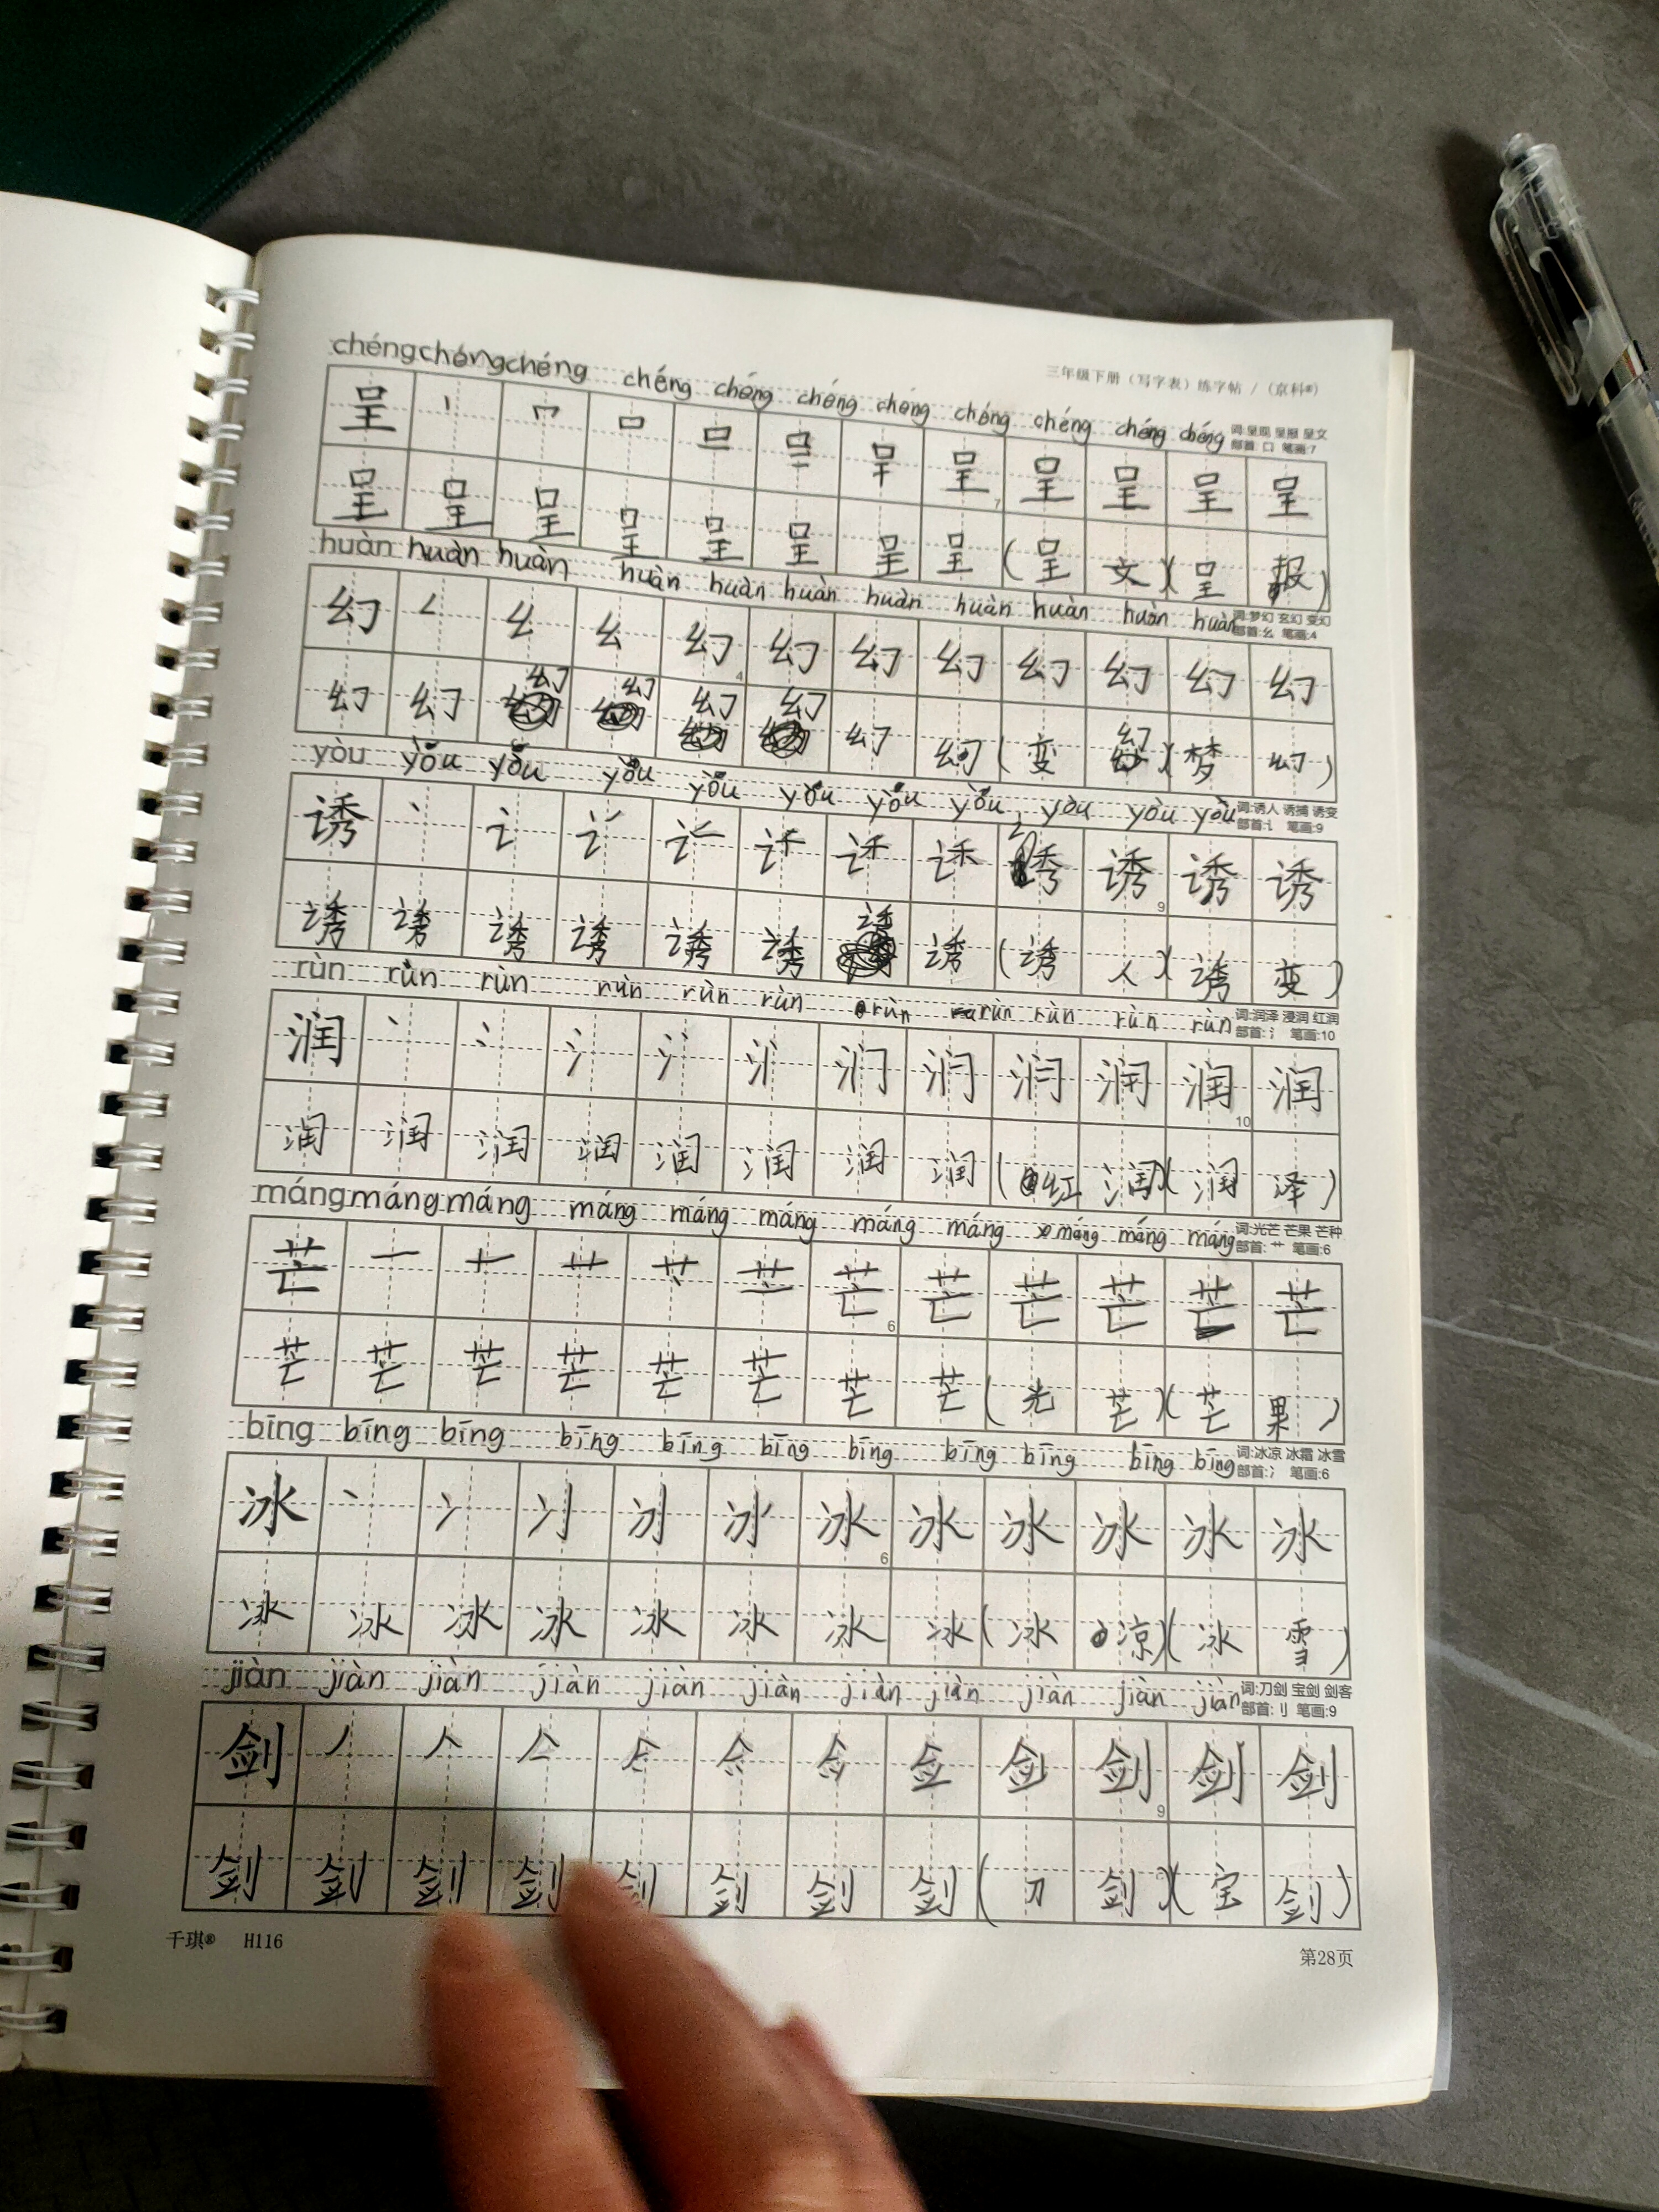 三年级下册（写字表）练字帖 /（京科®）
chéng chéng chéng chéng chéng chéng chéng chéng chéng chéng chéng
词:呈现 呈报 呈文
部首: 口 笔画:7
呈 丨 口 口 呈 呈 呈 呈 呈
7
呈 呈 呈 呈 呈 呈 呈 呈 (呈 文)(呈 报)
huàn huàn huàn huàn huàn huàn huàn huàn huàn huàn huàn
词:梦幻 玄幻 变幻
部首:幺 笔画:4
幻 幺 幻 幻 幻 幻 幻 幻 幻 幻
4
幻 幻 幻 幻 幻 幻 幻 幻 (变 幻)(梦 幻)
yòu yòu yòu yòu yòu yòu yòu yòu yòu yòu yòu
词:诱人 诱捕 诱变
部首:讠 笔画:9
诱 丶 讠 诱 诱 诱 诱
9
诱 诱 诱 诱 诱 诱 诱 诱 (诱 人)(诱 变)
rùn rùn rùn rùn rùn rùn rùn rùn rùn rùn rùn
词:润泽 浸润 红润
部首:氵 笔画:10
润 丶 冫 氵 润 润 润
10
润 润 润 润 润 润 润 润 (红 润)(润 泽)
máng máng máng máng máng máng máng máng máng máng máng
词:光芒 芒果 芒种
部首:艹 笔画:6
芒 一 十 艹 芒 芒 芒 芒 芒 芒
6
芒 芒 芒 芒 芒 芒 芒 芒 (光 芒)(芒 果)
bīng bīng bīng bīng bīng bīng bīng bīng bīng bīng bīng
词:冰凉 冰霜 冰雪
部首:冫 笔画:6
冰 丶 冫 冰 冰 冰 冰 冰 冰
6
冰 冰 冰 冰 冰 冰 冰 冰 (冰 凉)(冰 雪)
jiàn jiàn jiàn jiàn jiàn jiàn jiàn jiàn jiàn jiàn jiàn
词:刀剑 宝剑 剑客
部首:刂 笔画:9
剑 丿 人 亼 佥 剑 剑 剑
9
剑 剑 剑 剑 剑 剑 剑 剑 (刀 剑)(宝 剑)
千琪® H116
第28页